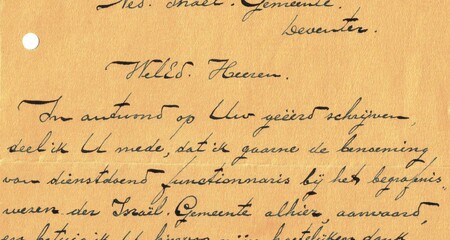 Ned. Israël. Gemeente.
Deventer.
WelEd. Heeren.
In antwoord op Uw geëerd schrijven,
deel ik U mede, dat ik gaarne de benoeming
van dienstdoend functionnaris bij het begrafenis-
wezen der Israël. Gemeente alhier, aanvaard,
en betuig ik U hiervoor mijn hartelijken dank